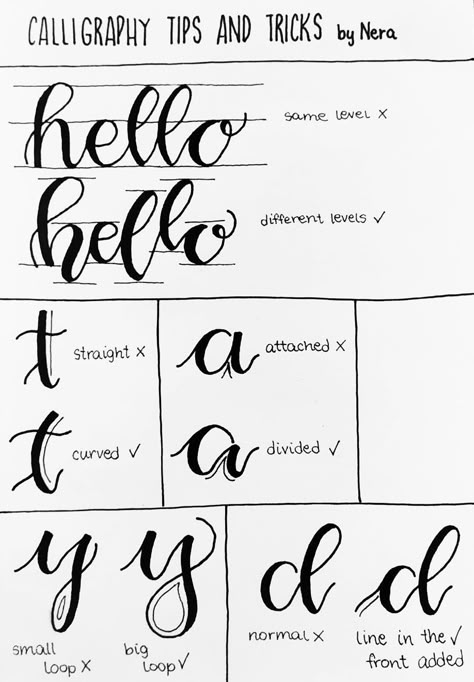 CALLIGRAPHY TIPS AND TRICKS by Nera
hello
same level x
hello
different levels ✓
t
straight x
t
curved ✓
a
attached x
a
divided ✓
y
small
loop x
y
big
loop ✓
d
normal x
d
line in the ✓
front added